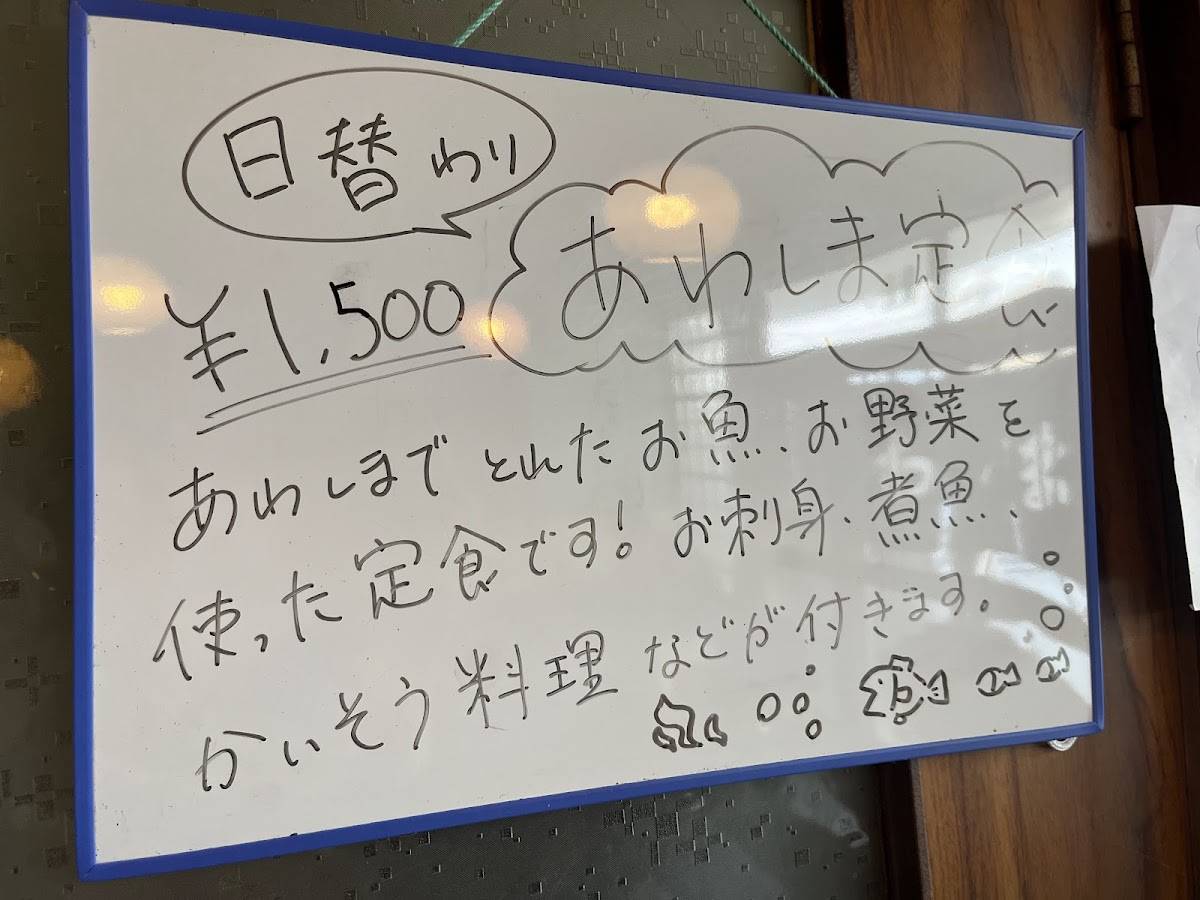 日替わり
あわしま定食
¥1,500
あわしまでとれたお魚、お野菜を
使った定食です！お刺身、煮魚、
かいそう料理などが付きます。